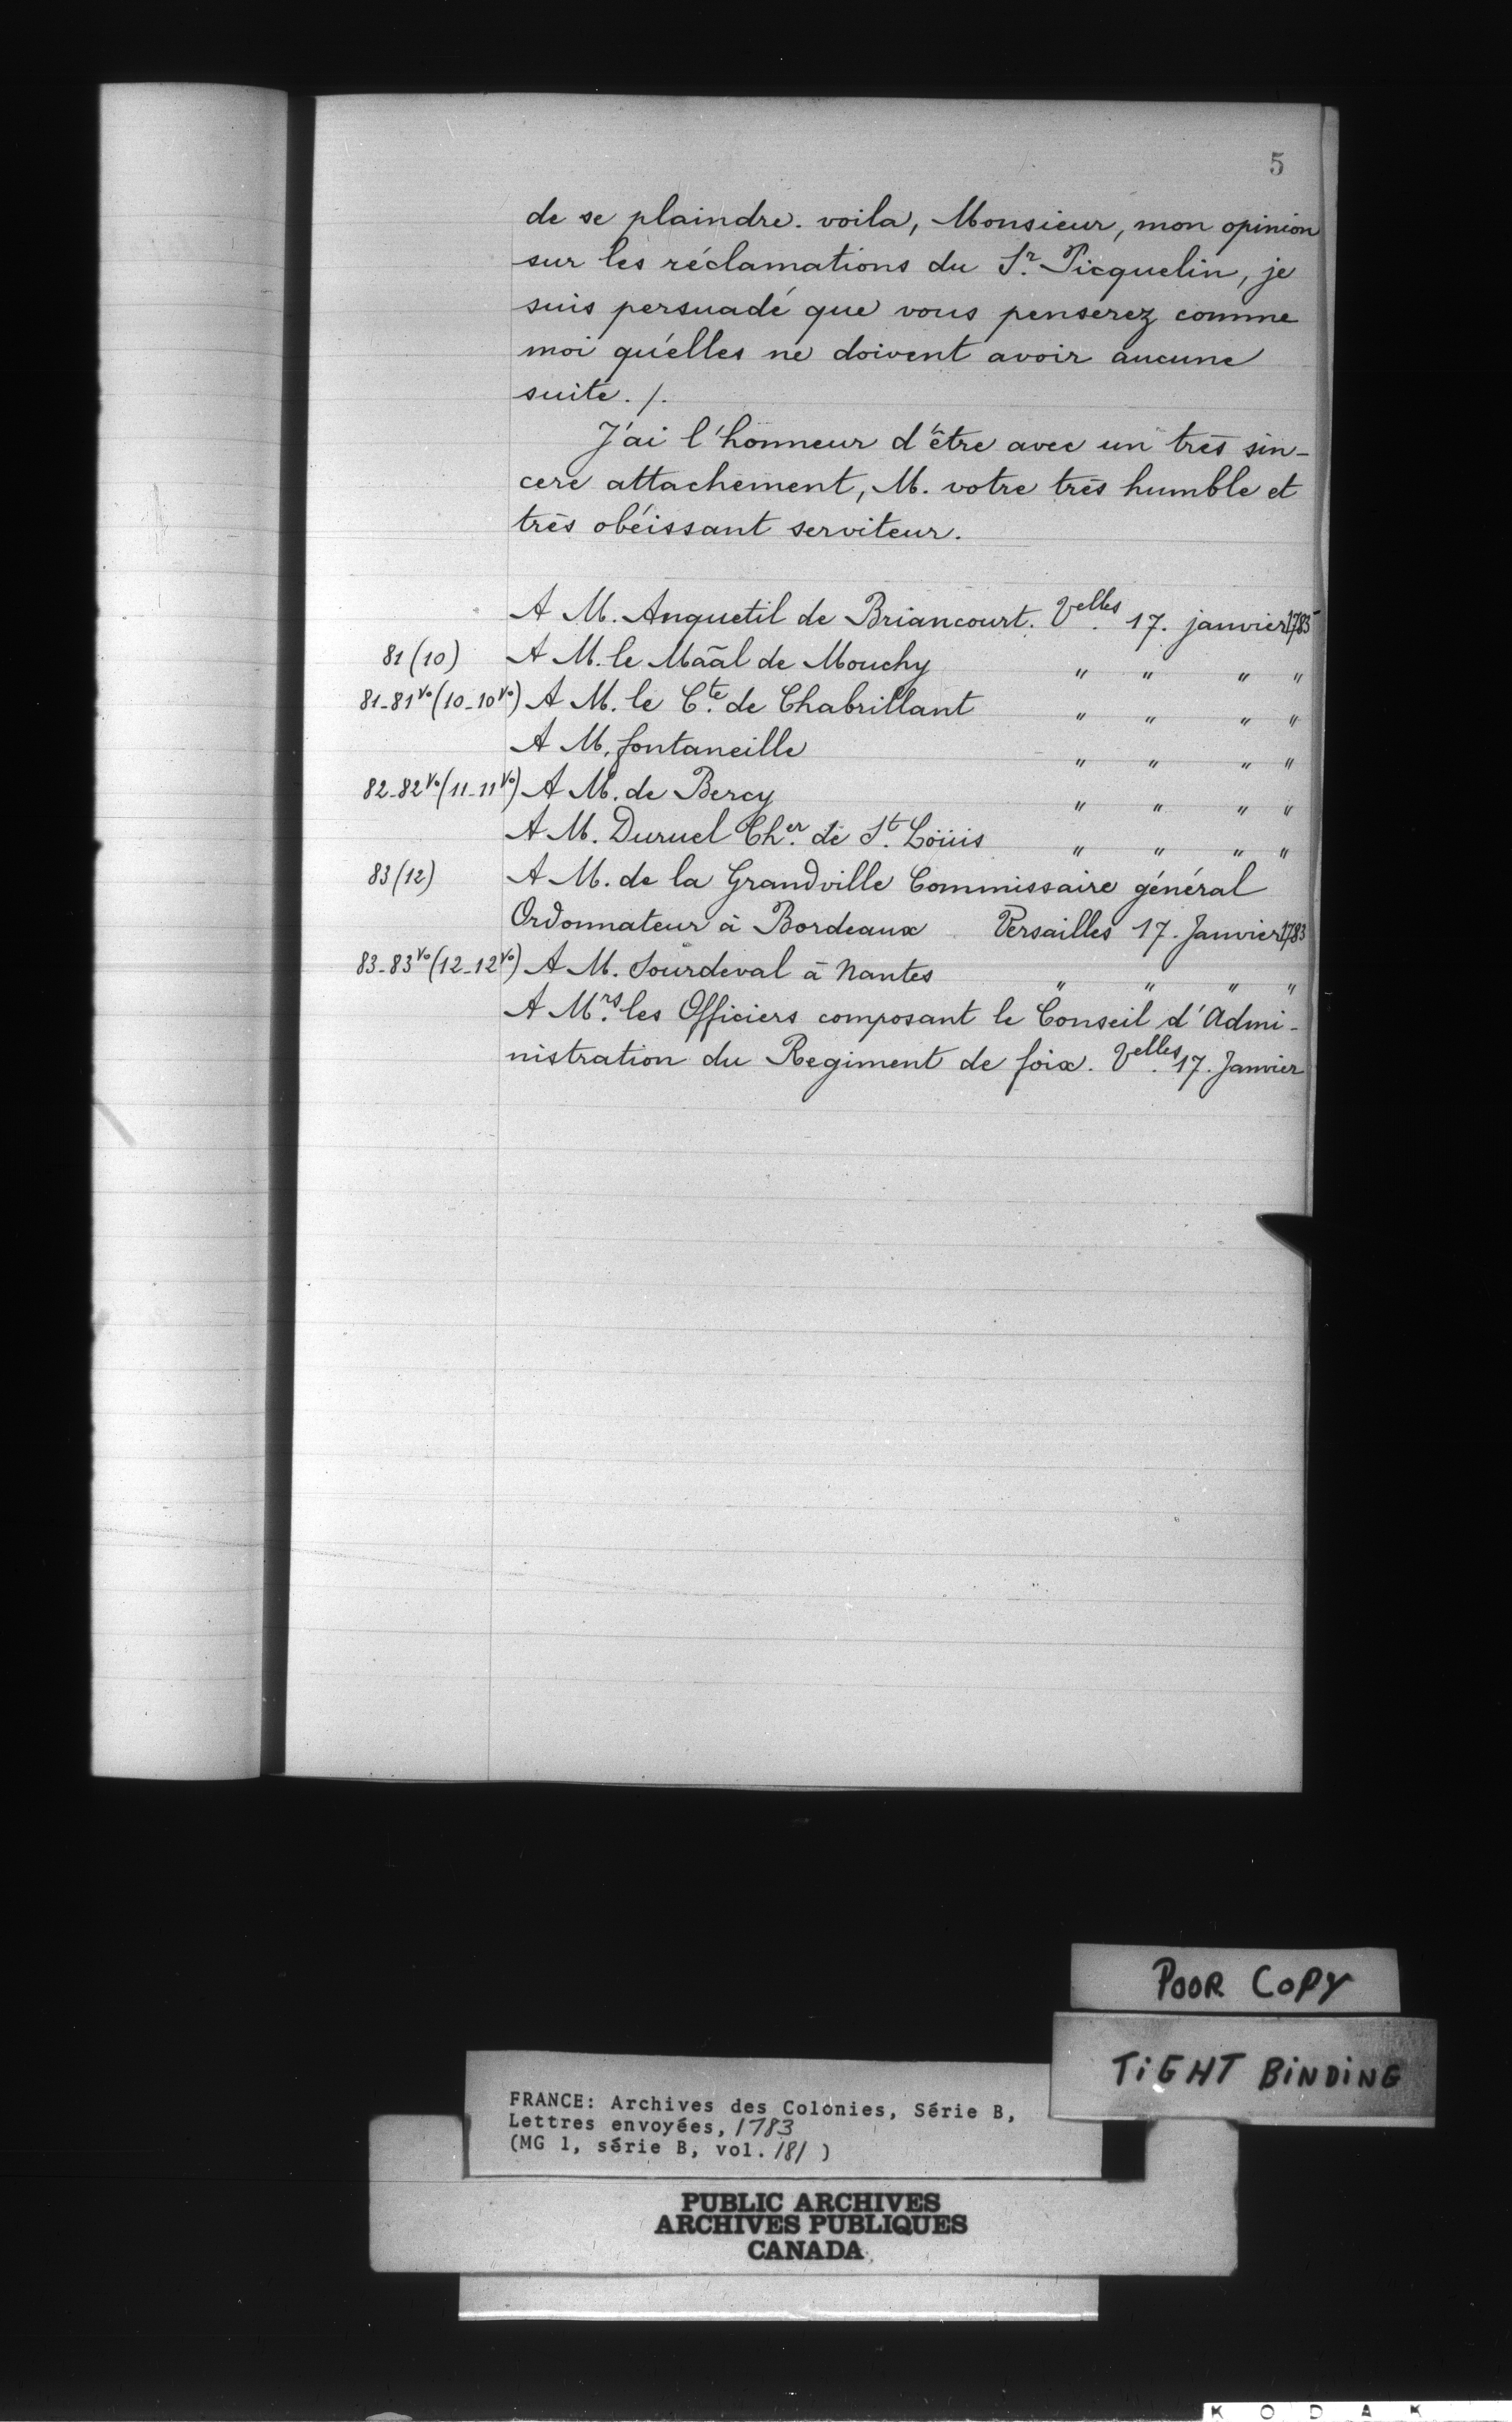 5
de se plaindre. voila, Monsieur, mon opinion
sur les réclamations du Sr. Picquelin, je
suis persuadé que vous penserez comme
moi qu'elles ne doivent avoir aucune
suite. /.
J'ai l'honneur d'être avec un très sin-
cere attachement, M. votre très humble et
très obéissant serviteur.
A M. Anquetil de Briancourt. Velles. 17. janvier 1783
81 (10) A M. le Maāl de Mouchy " " " "
81-81vo (10-10vo) A M. le Cte. de Chabrillant " " " "
A M. fontaneille " " " "
82-82vo (11-11vo) A M. de Bercy " " " "
A M. Duruel Cher. de St. Loüis " " " "
83 (12) A M. de la Grandville Commissaire général
Ordonnateur à Bordeaux Versailles 17. Janvier 1783
83-83vo (12-12vo) A M. Sourdeval à Nantes " " " "
A Mrs. les Officiers composant le Conseil d'Admi-
nistration du Regiment de foix. Velles. 17. Janvier
POOR COPY
TIGHT BINDING
FRANCE: Archives des Colonies, Série B,
Lettres envoyées, 1783
(MG 1, série B, vol. 181 )
PUBLIC ARCHIVES
ARCHIVES PUBLIQUES
CANADA
KODAK